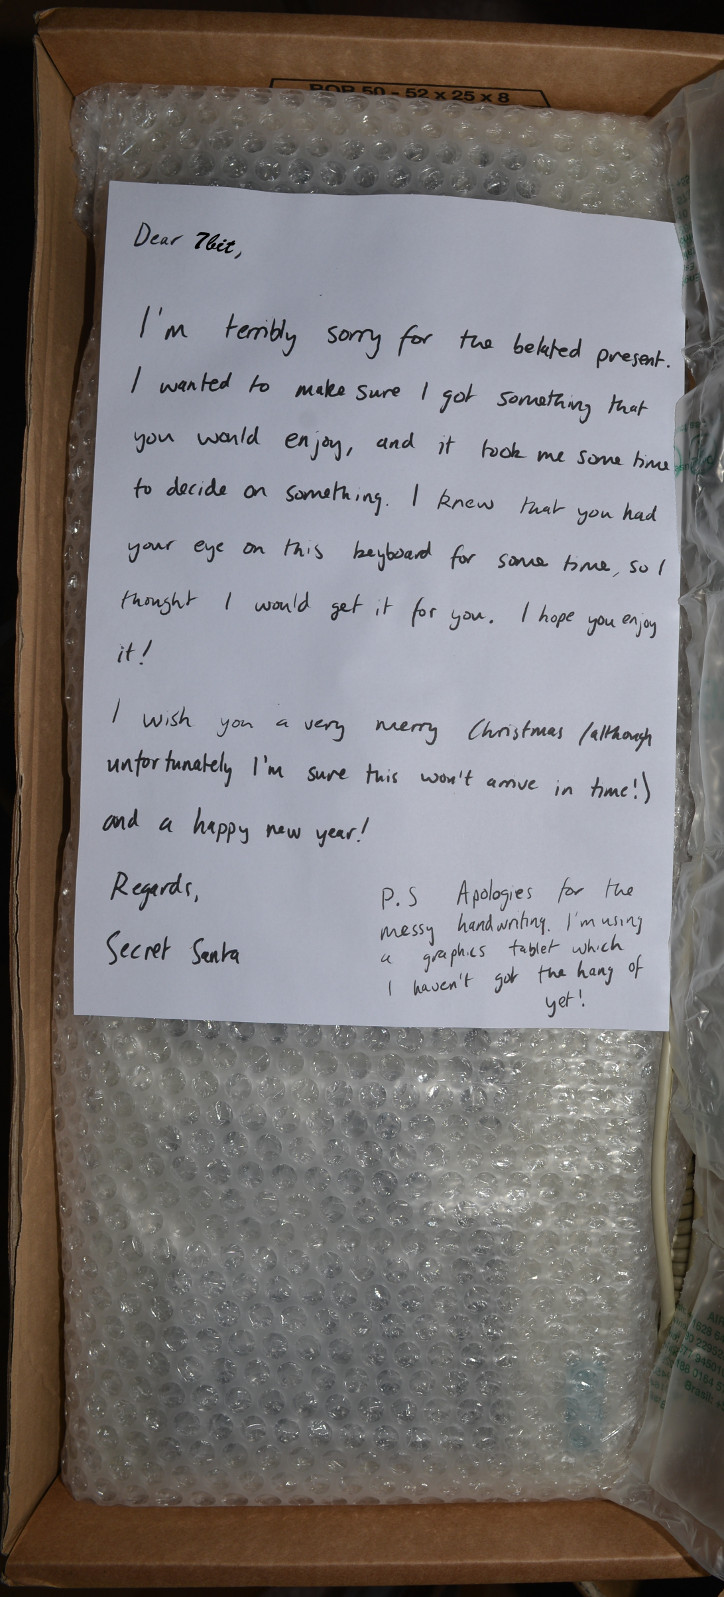 POP 50 - 52 x 25 x 8
Dear 7bit,
I'm terribly sorry for the belated present.
I wanted to make sure I got something that
you would enjoy, and it took me some time
to decide on something. I knew that you had
your eye on this keyboard for some time, so I
thought I would get it for you. I hope you enjoy
it!
I wish you a very merry Christmas (although
unfortunately I'm sure this won't arrive in time!)
and a happy new year!
Regards,
Secret Santa
P.S Apologies for the
messy handwriting. I'm using
a graphics tablet which
I haven't got the hang of
yet!
Brasil: